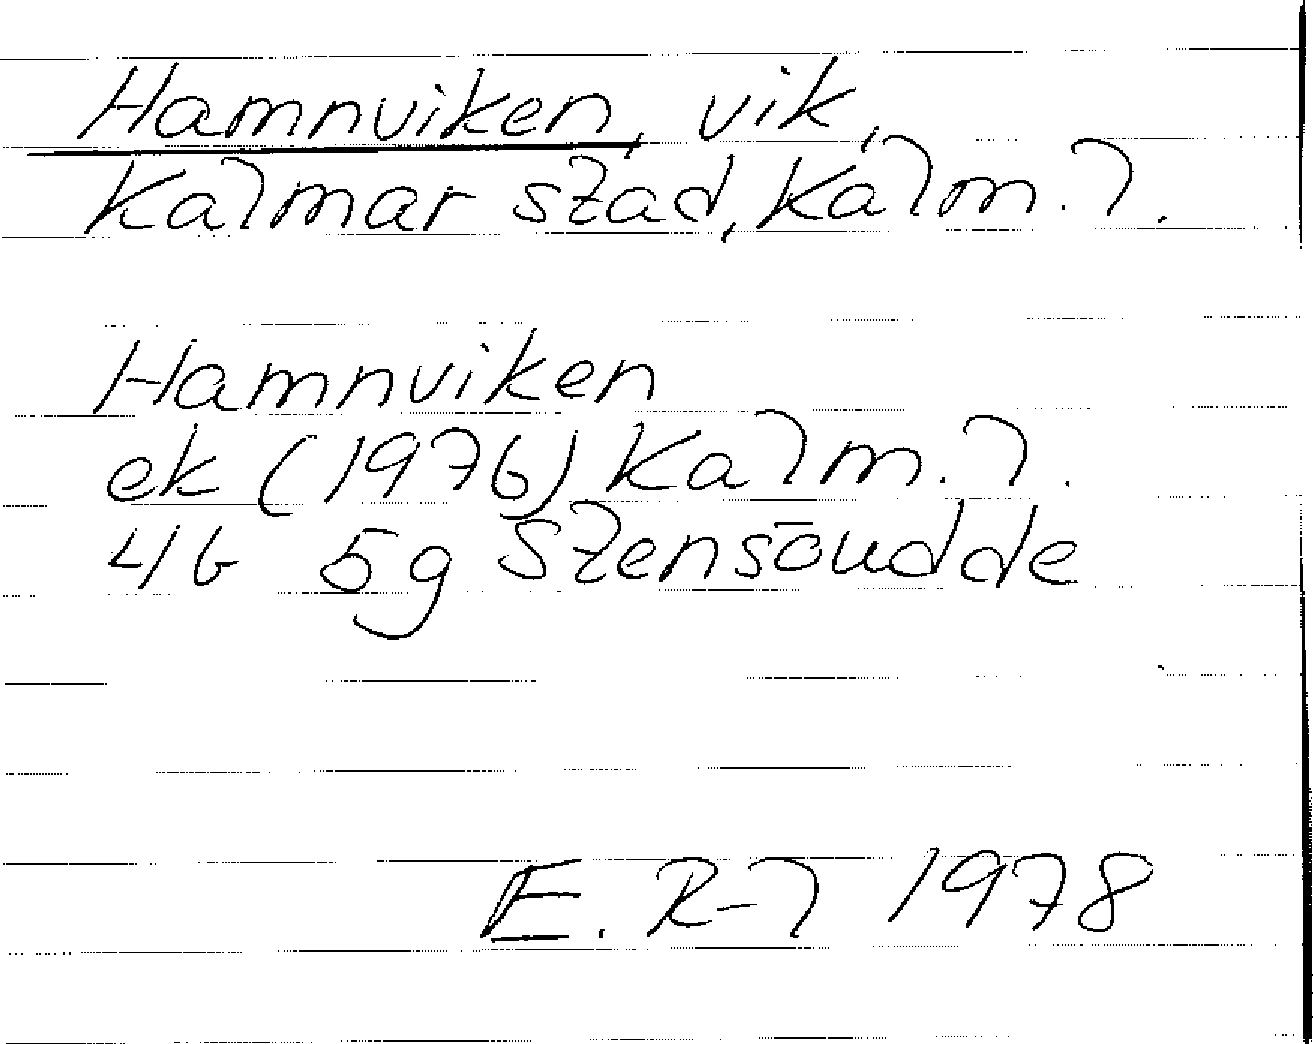 Hamnviken, vik,
Kalmar stad, Kalm. l.
Hamnviken
ek (1976) Kalm. l.
4G 5g Stensöudde
E. R-l 1978